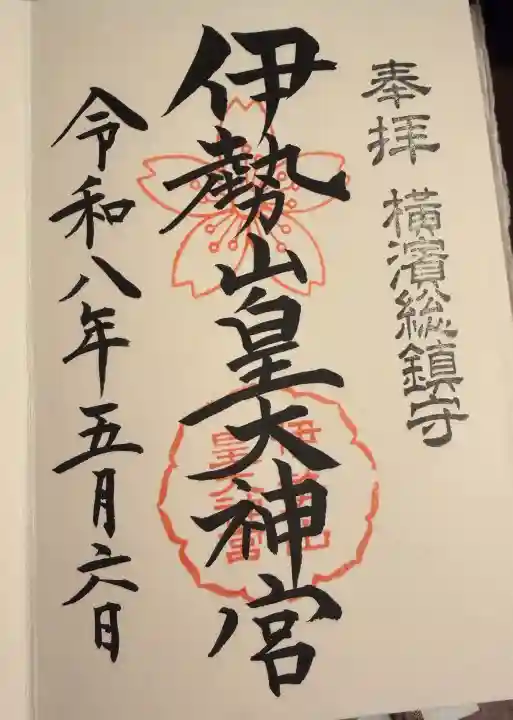 奉拝
横濱総鎮守
伊勢山皇大神宮
伊勢山
皇大神宮
令和八年五月六日